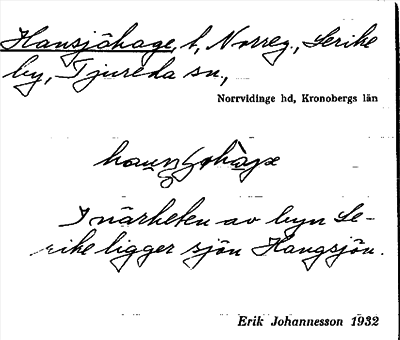 Hansjöhage, t, Norreg., Serike
by, Tjureda sn.,
Norrvidinge hd, Kronobergs län
I närheten av byn Se-
rike ligger sjön Hangsjön.
Erik Johannesson 1932